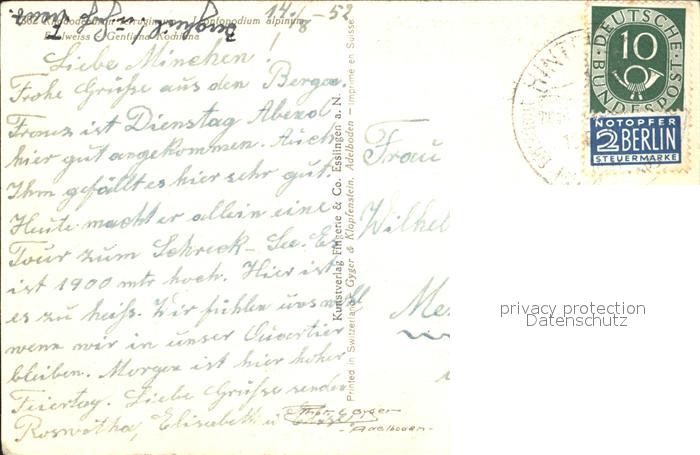 14./8 - 52
Liebe Minchen!
Frohe Grüße aus den Bergen.
Franz ist Dienstag Abend
hier gut angekommen. Auch
Ihm gefällt es hier sehr gut.
Heute macht er allein eine
Tour zum Schreck-See. Er
ist 1900 mtr hoch. Hier ist
es zu heiß. Wir fühlen uns wohl
wenn wir in unser Quartier
bleiben. Morgen ist hier hoher
Feiertag. Liebe Grüße senden
Roswitha, Elisabeth u
Kunstverlag Fingerle & Co. Esslingen a. N.
Printed in Switzerland - Gyger & Klopfenstein, Adelboden - Imprimé en Suisse
Phot. E. Gyger
- Adelboden -
Frau
Wilhel
Me
HINTE
DEUTSCHE
BUNDESPOST
10
NOTOPFER
2 BERLIN
STEUERMARKE
privacy protection
Datenschutz